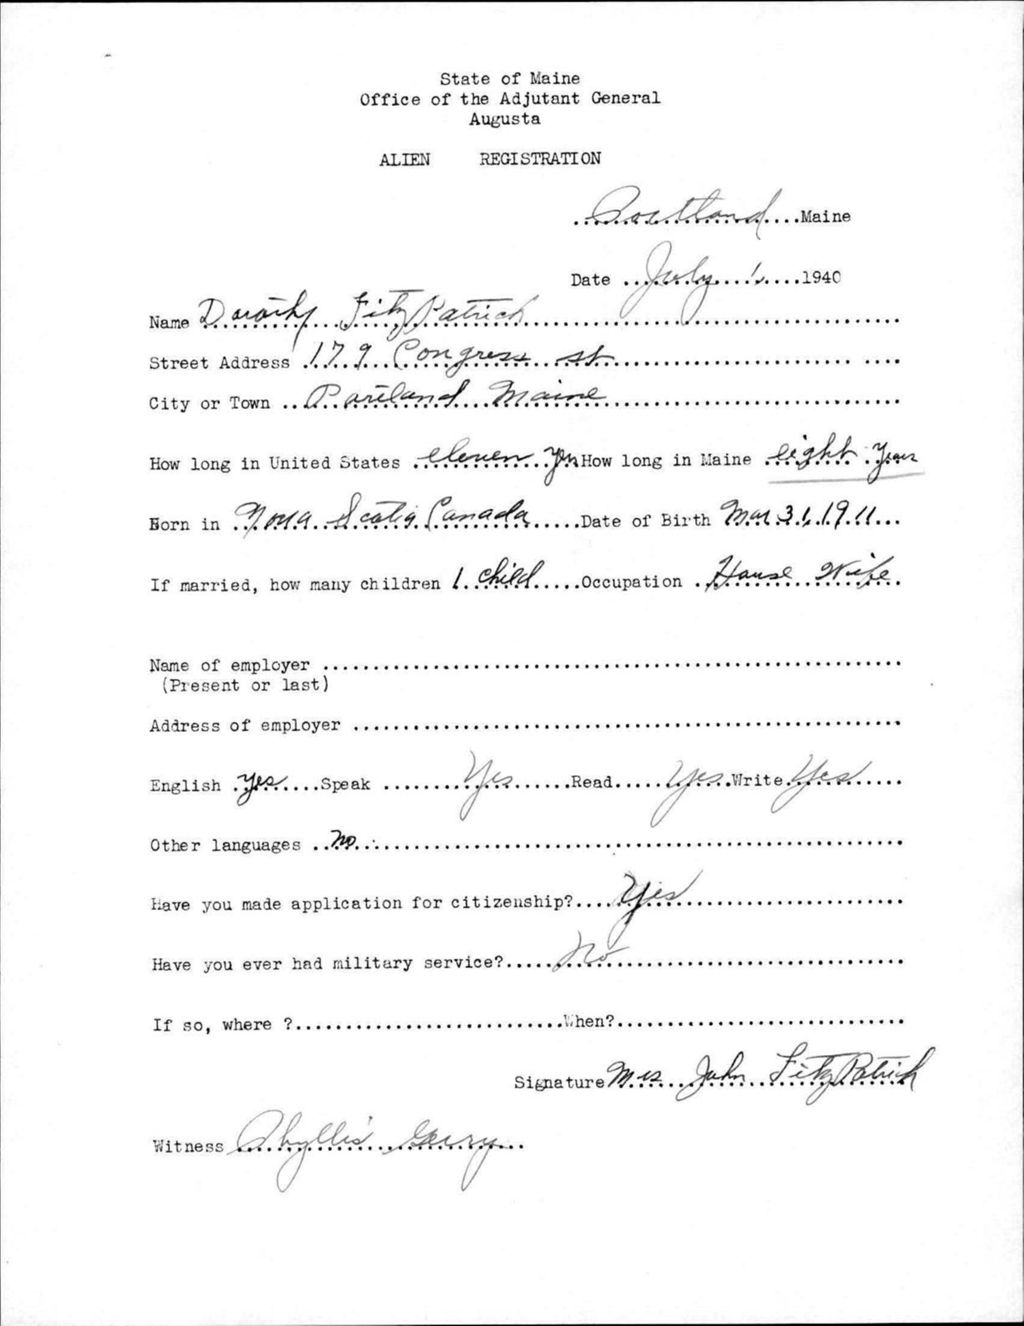 State of Maine
Office of the Adjutant General
Augusta
ALIEN REGISTRATION
Portland....Maine
Date ..July 1, ....1940
Name Dorothy Fitz Patrick
Street Address .179 Congress St
City or Town ..Portland Maine
How long in United States .eleven yrs How long in Maine .eight Years
Born in .Nova Scotia Canada.....Date of Birth Mar. 31, 1911...
If married, how many children 1 child.....Occupation .House Wife.
Name of employer ..........................................................
(Present or last)
Address of employer .......................................................
English .Yes....Speak ........Yes......Read.....Yes..Write.Yes....
Other languages ..no......................................................
Have you made application for citizenship?....Yes......................
Have you ever had military service?.....No............................
If so, where ?...........................When?.............................
Signature Mrs. John Fitz Patrick
Witness Phyllis Gerry